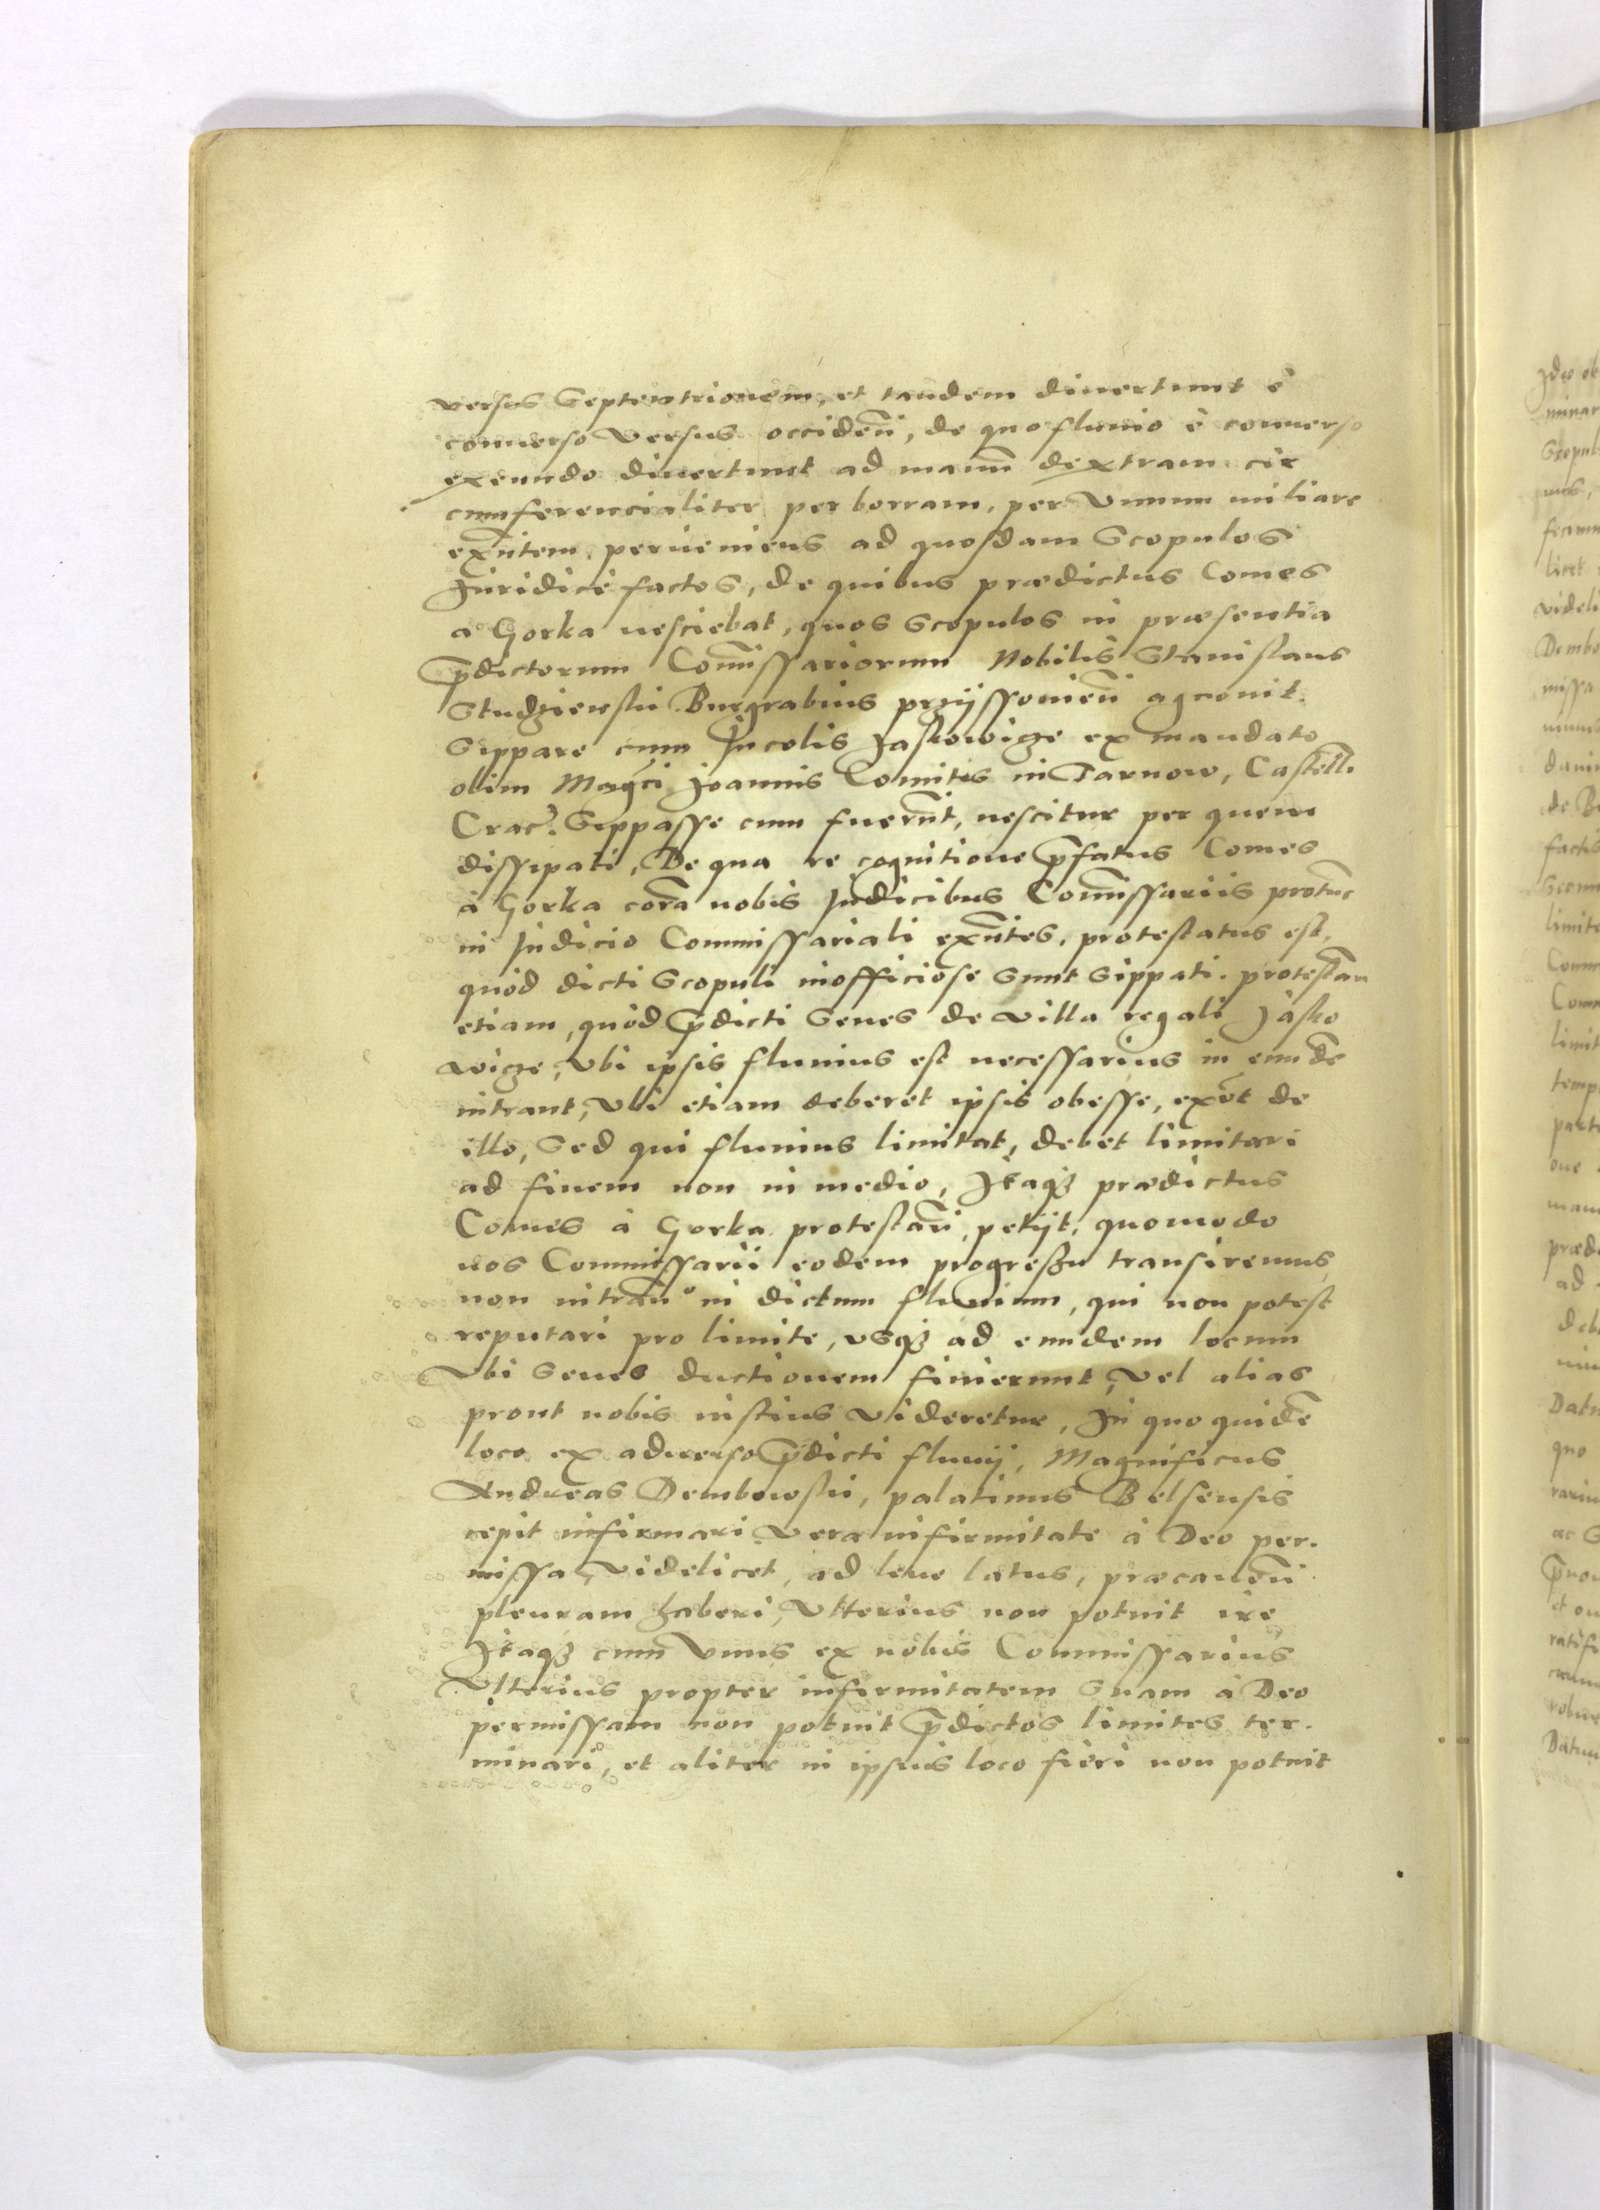 versus Septentrionem, et tandem diuertunt è
conuerso versus occideñ, de quo fluuio è conuerso
exeundo diuertunt ad manũ dextram cir
cumferencialiter per borram, per vnum miliare
exñtem, perueniens ad quosdam Scopulos
Juridicè factos, de quibus prædictus Comes
a Gorka nesciebat, quos Scopulos in præsentia
p̄dictorum Com̃issariorum Nobilis Stanislaus
Studziensky Burgrabius agnouit.
Sippare cum Jncolis Jaskowicze ex mandato
olim Magc̃i Joannis Comitis in Tarnow, Castell.
Crac. Sippasse cum fuerũt, nescitur per quem
dissipati, De qua re cognitione p̄fatus Comes
à Gorka corã nobis Judicibus Com̃issariis protũc
in Judicio Commissariali exñtes, protestatus est,
quòd dicti Scopuli inofficiose sunt Sippati. protestañ
etiam, quòd p̄dicti Senes de villa regali Jasko
wicze, vbi ipsis fluuius est necessarius in eundẽ
intrant, vbi etiam deberet ipsis obesse, exeũt de
illo, Sed qui fluuius limitat, debet limitari
ad finem non in medio, Jtaqȝ prædictus
Comes à Gorka protestañ, petijt, quomodo
nos Commissarii eodem progressu transiremus,
non intrañ in dictum fluuium, qui non potest
reputari pro limite, vsqȝ ad eundem locum
vbi Senes ductionem finierunt, vel alias
prout nobis iustius videretur, Jn quo quidẽ
loco ex aduerso p̄dicti fluuij, Magnificus
Andreas Dembowsky, palatinus Belsensis
cepit infirmari vera infirmitate à Deo per.
missa, videlicet, ad leue latus, præcaueñ
pleuram haberi, vlterius non potuit ire,
Jtaqȝ cum vnus ex nobis Commissarius
vlterius propter infirmitatem Suam à Deo
permissam non potuit p̄dictos limites ter.
minari, et aliter in ipsius loco fieri non potuit